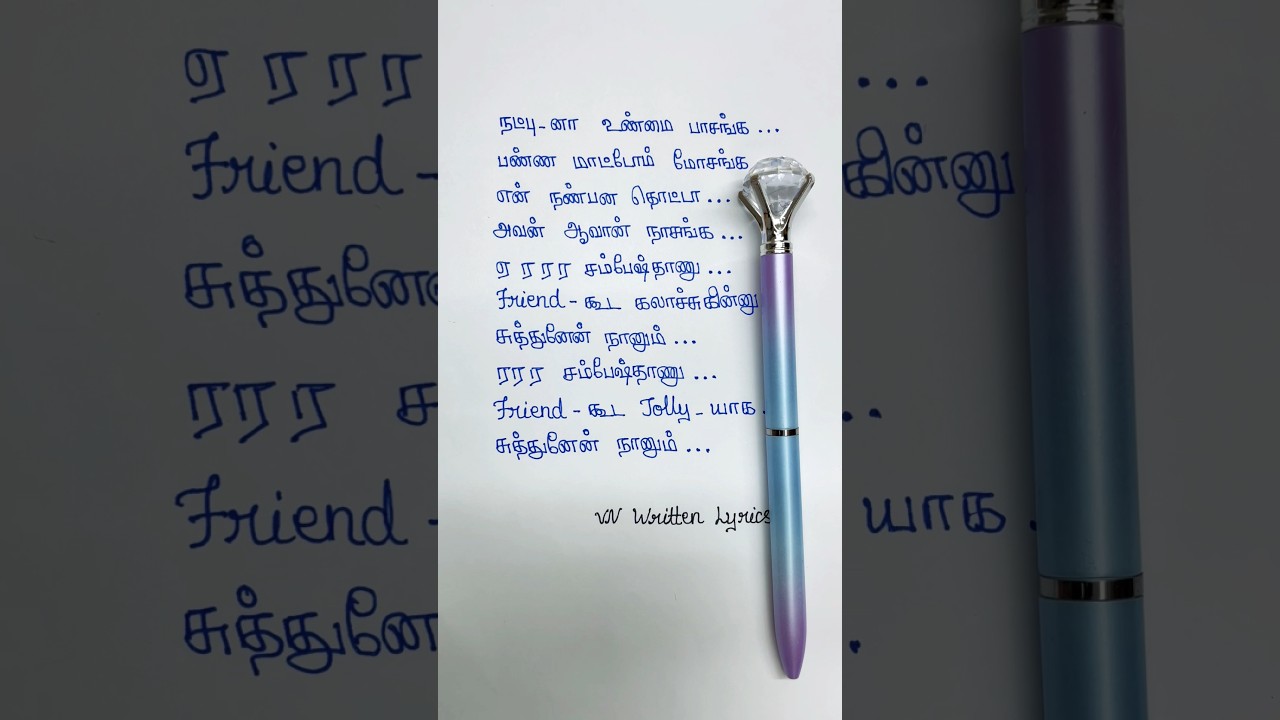 நட்பு-னா உண்மை பாசங்க ...
பண்ண மாட்டோம் மோசங்க
என் நண்பன தொட்டா ...
அவன் ஆவான் நாசங்க ...
ஏ ர ர ர சம்பேஷ்தாணு ...
Friend - கூட கலாச்சுகின்னு
சுத்துனேன் நானும் ...
ரர ர சம்பேஷ்தாணு ...
Friend - கூட Jolly - யாக .
சுத்துனேன் நானும் ...
VN Written Lyrics